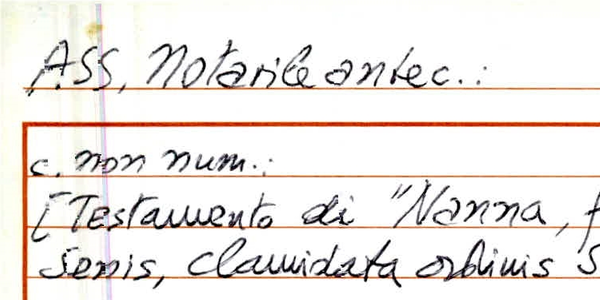 ASS, Notarile antec.:
c. non num.:
[Testamento di "Nanna, f
Senis, clamidata ordinis S